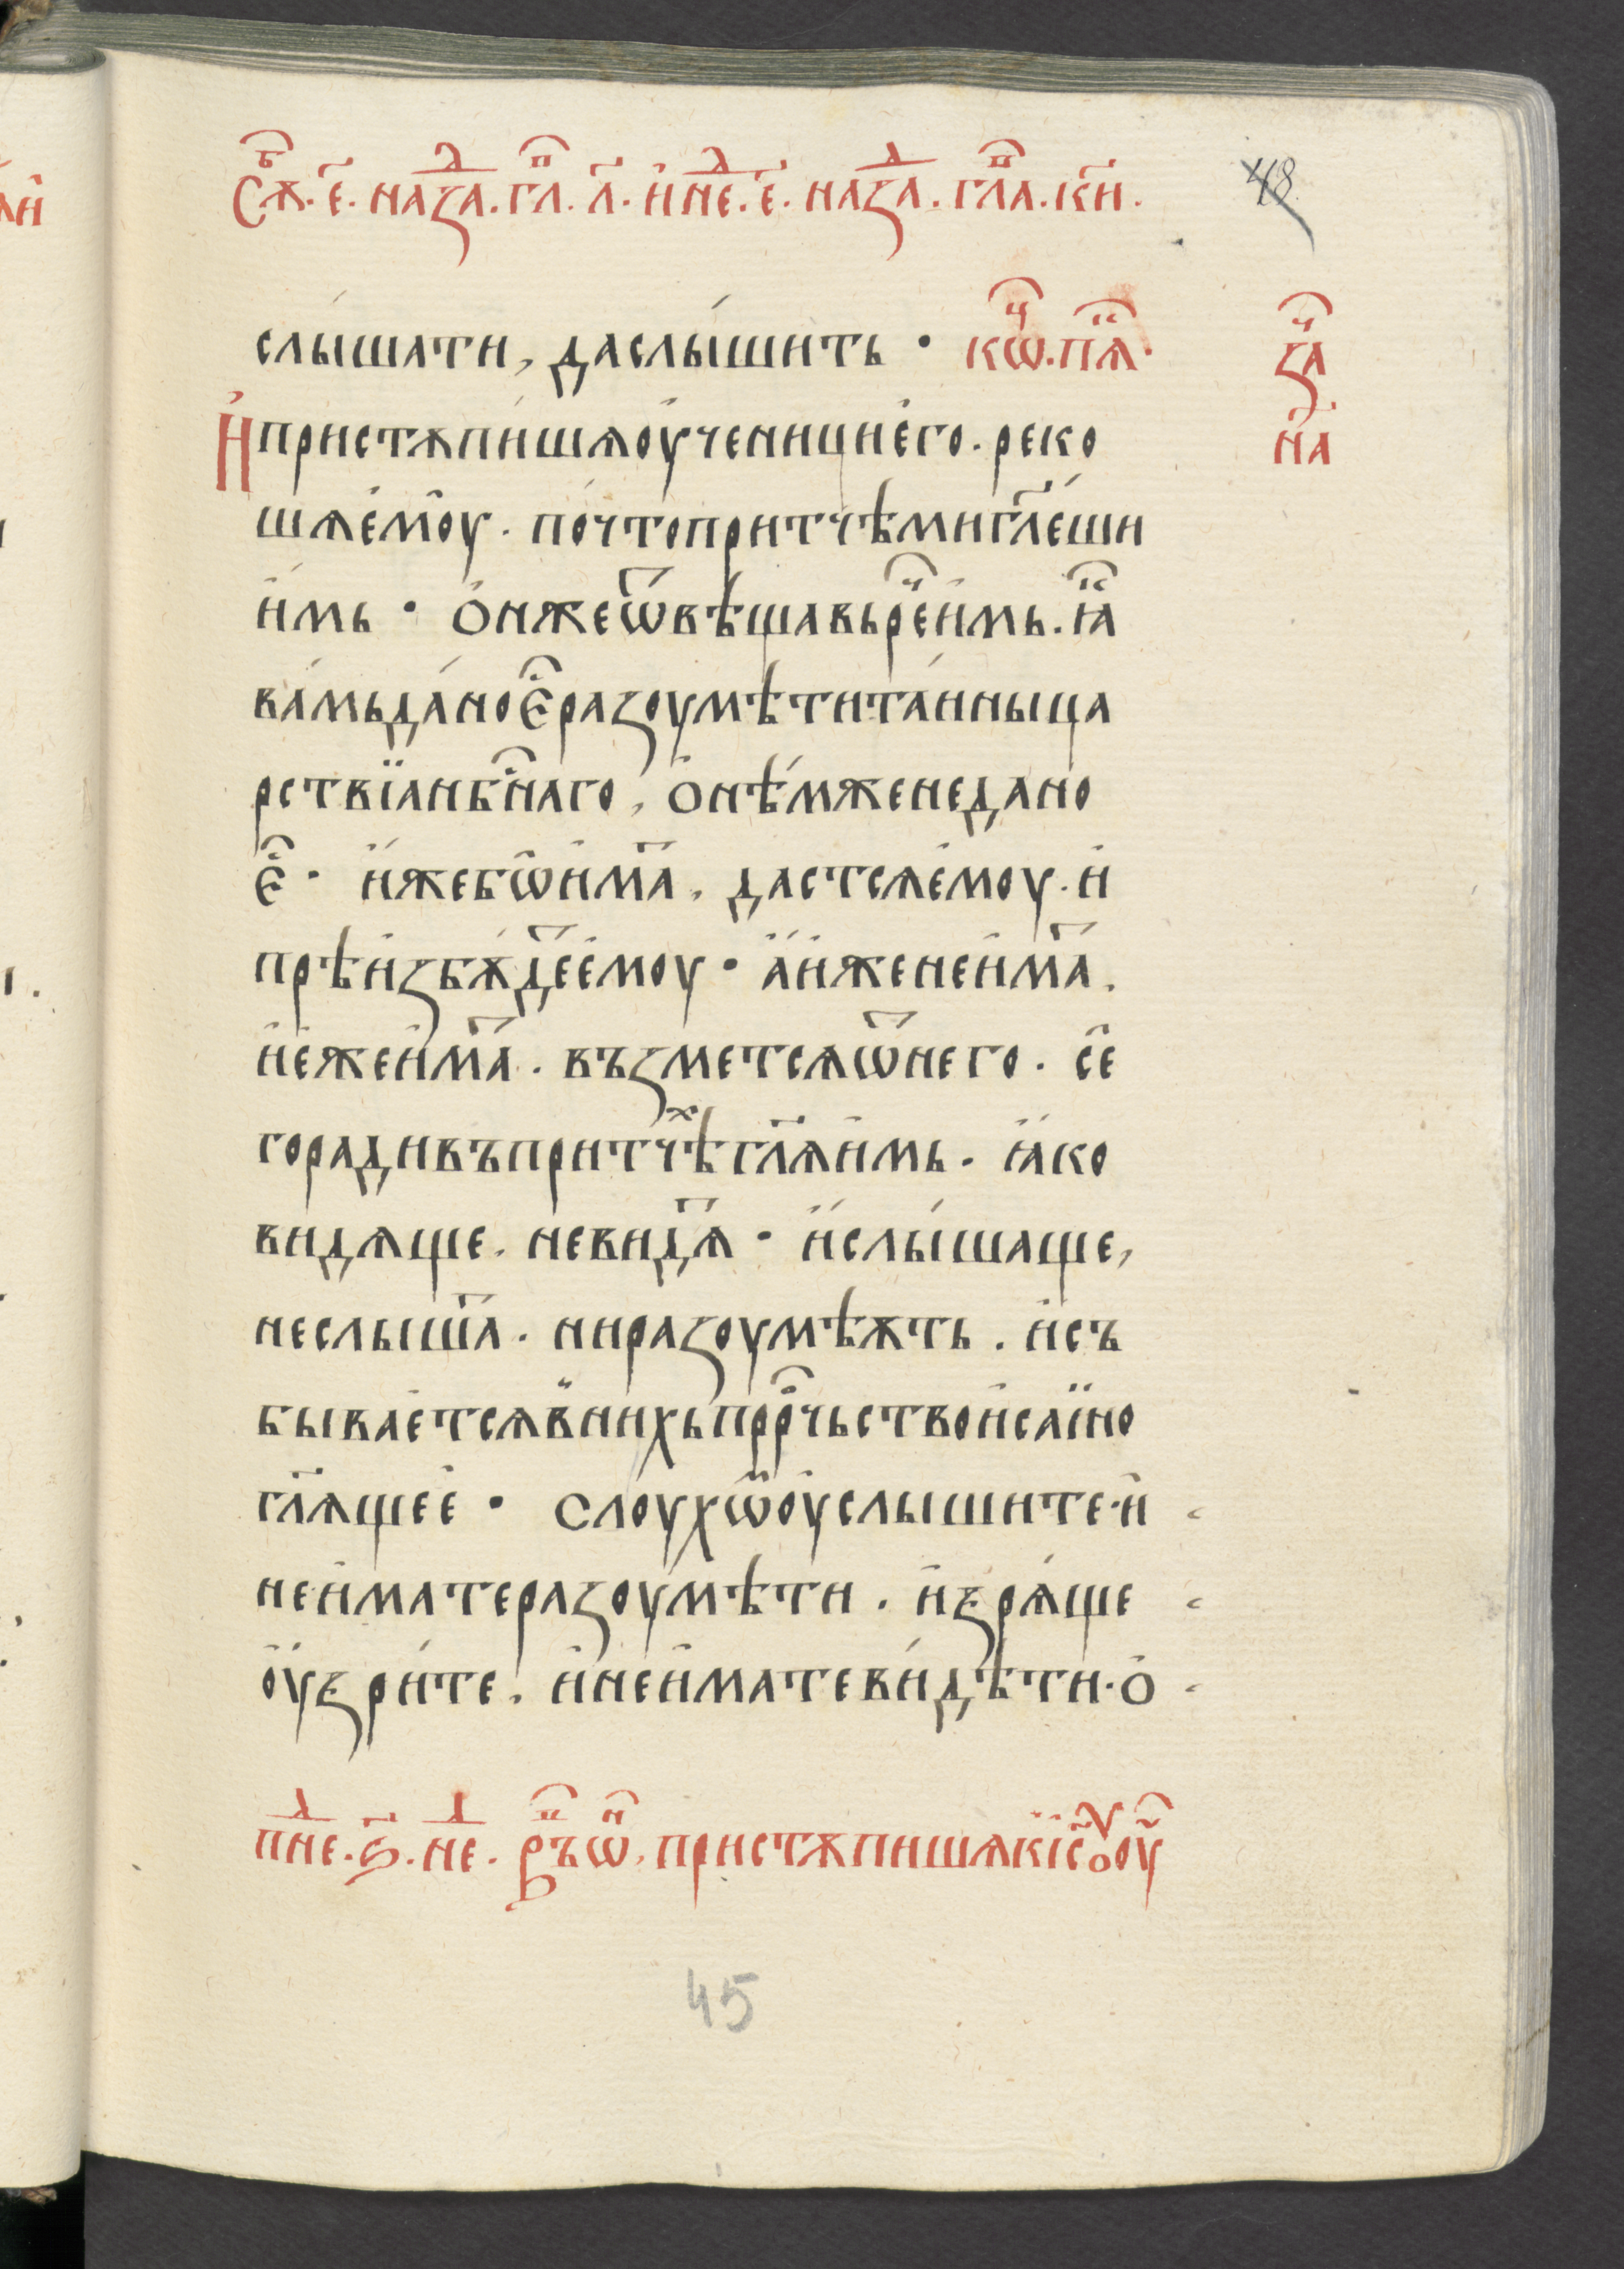 Сѫ҇б. є҃. на зад҇. гл҇п. л҃. и҆ нед҇. є҃. на зад҇. гл҇па. ки҃.
48
слы́шати, да слы́шить · кѡ҇ч. пѧ҇к.
за҇ч
на҃
И҆ пристѫпи́шѧ оу҆ченици е҆го. реко
шѧ е҆мо̑у. по́что притчѣми гл҃е́ши
и҆мь · о҆н же ѿвѣщавь ре҇ч и҆мь. ꙗ҇к
ва́мь да́но є҇с разоумѣти та́инны ца
рствїа нб҇снаго, о҆нѣ́м же не дано
є҇с · и҆́же бѡ̑ и҆ма҇т. дастсѧ е҆моу. и҆
прѣи҆збѫ́де҇т е҆моу · а҆́ и҆же не и҆ма҇т.
и҆ е҆же и҆ма҇т. възметсѧ ѿ него. се̑
го ради въ притчѣ҇х гл҃ѧ и҆мь. ꙗ҆́ко
видѧще. не видѧ҇т · и҆ слы́шаще,
не слыша҇т. ни разоумѣѫть. и҆ съ
бывае҆тсѧ в̾ нихь прⷪ҇рчьство и҆саїи́но
гл҃ѧщее҆ · Слоухѡ҇м оу҆слышите. и҆
не и҆мате разоу́мѣти. и҆ ꙁрѧ́ще
оу҆́ꙁри́те. и҆ не и҆мате ви́дѣти. о҆
пне҇д. ѕ҃. не҇д. въ ѡ҇н. пристѫпишѧ к і҆с҃оу оу҇ч
45